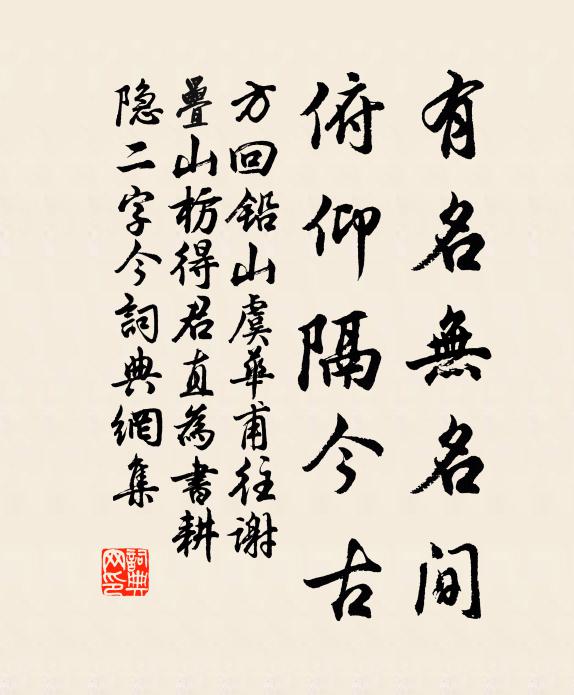 有名無名間
俯仰隔今古
方回鉛山虞華甫往謝
疊山枋得君直為書耕
隐二字今詞典網集
詞典網印